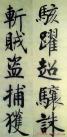 駭躍超驤誅
斬賊盜捕獲